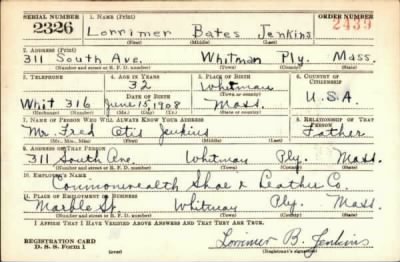 SERIAL NUMBER 1. NAME (Print) ORDER NUMBER
2326 Lorrimer Bates Jenkins 2439
(First) (Middle) (Last)
2. ADDRESS (Print)
311 South Ave. Whitman Ply. Mass.
(Number and street or R. F. D. number) (Town) (County) (State)
3. TELEPHONE 4. AGE IN YEARS 5. PLACE OF BIRTH 6. COUNTRY OF CITIZENSHIP
32 Whitman
DATE OF BIRTH (Town or county)
Whit 316 June 15, 1908 Mass. U.S.A.
(Exchange) (Number) (Mo.) (Day) (Yr.) (State or country)
7. NAME OF PERSON WHO WILL ALWAYS KNOW YOUR ADDRESS 8. RELATIONSHIP OF THAT PERSON
Mr. Fred Otis Jenkins Father
(Mr., Mrs., Miss) (First) (Middle) (Last)
9. ADDRESS OF THAT PERSON
311 South Ave. Whitman Ply. Mass.
(Number and street or R. F. D. number) (Town) (County) (State)
10. EMPLOYER'S NAME
Commonwealth Shoe & Leather Co.
11. PLACE OF EMPLOYMENT OR BUSINESS
Marble St. Whitman Ply. Mass.
(Number and street or R. F. D. number) (Town) (County) (State)
I AFFIRM THAT I HAVE VERIFIED ABOVE ANSWERS AND THAT THEY ARE TRUE.
REGISTRATION CARD
D. S. S. Form 1 (over) Lorrimer B. Jenkins
(Registrant's signature)